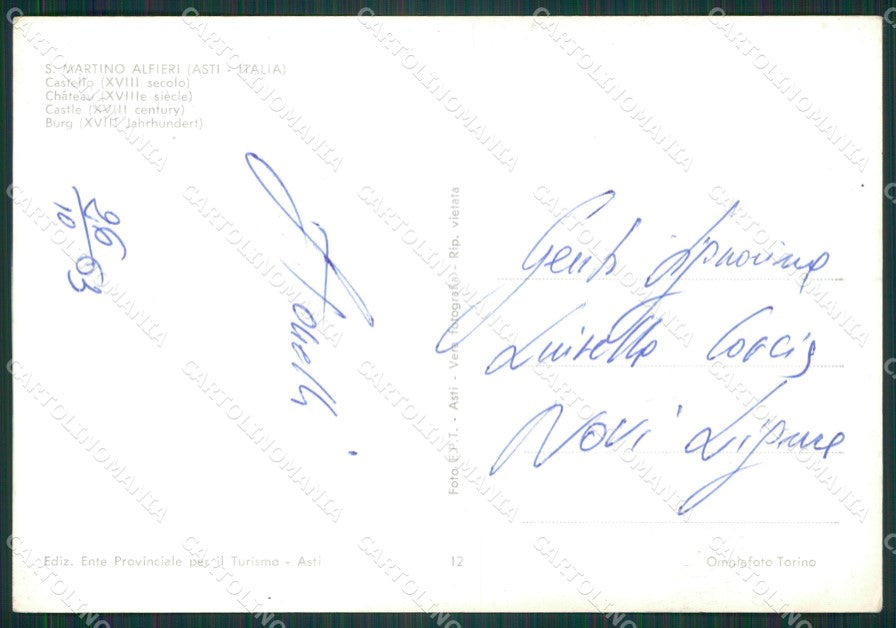 S. MARTINO ALFIERI (ASTI - ITALIA)
Castello (XVIII secolo)
Château (XVIIIe siècle)
Castle (XVIII century)
Burg (XVIII Jahrhundert)
26/10 63
Foto E.P.T. - Asti - Vera fotografia - Rip. vietata
Gent. Signorina
Luisella
Novi Ligure
Ediz. Ente Provinciale per il Turismo - Asti
12
Omniafoto Torino
CARTOLINOMANIA